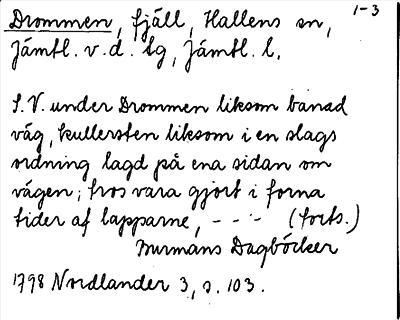 1-3
Drommen, fjäll, Hallens sn,
Jämtl. v. d. tg, Jämtl. l.
S.V. under Drommen liksom banad
väg, kullersten liksom i en slags
ordning lagd på ena sidan om
vägen; tros vara gjort i forna
tider af lapparne, - - - (forts.)
Burmans Dagböcker
1798 Nordlander 3, s. 103.